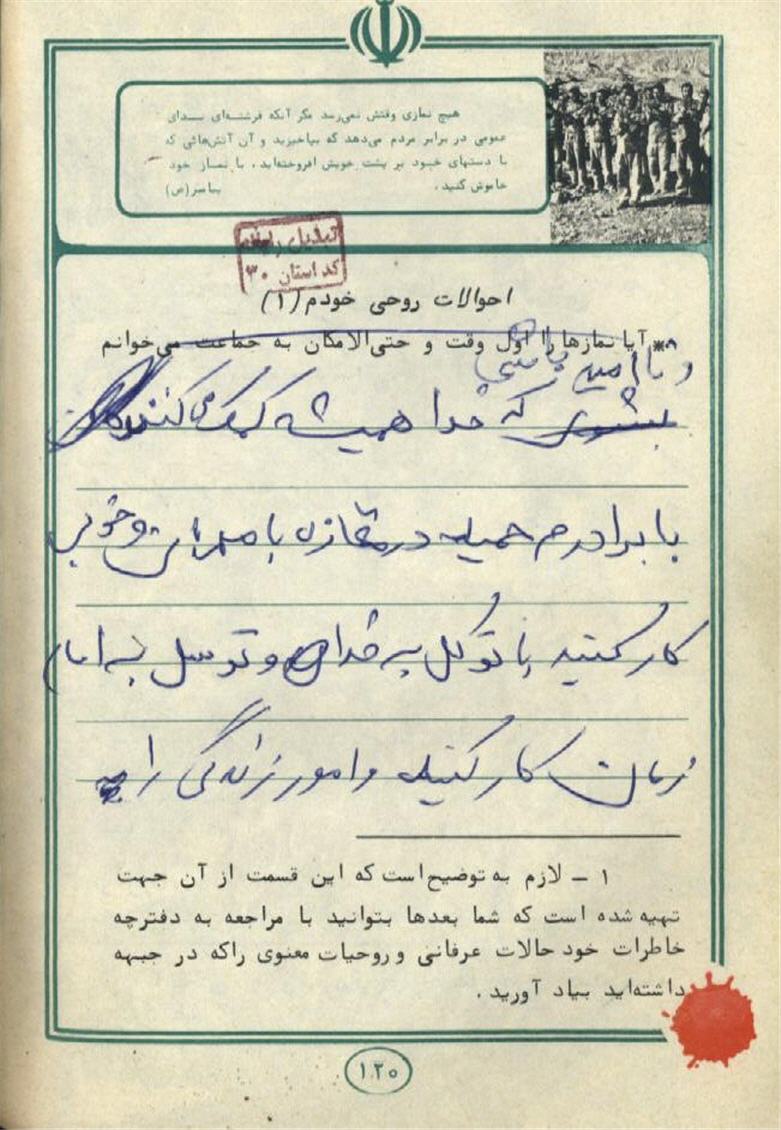 هیچ نمازی وقتش نمی‌رسد مگر آنکه فرشته‌ای ندای
عمومی در برابر مردم می‌دهد که بپاخیزید و آن آتش‌هائی که
با دستهای خود بر پشت خویش افروخته‌اید، با نماز خود
خاموش کنید. پیامبر(ص)
تبدیل
کد استان ۳۰
احوالات روحی خودم (۱)
* آیا نمازها را اول وقت و حتی‌الامکان به جماعت می‌خوانم
و با امید
که خدا همیشه کمک می‌کند
با برادرم حمید در مغازه با مهربانی و خوبی
کار کنید با توکل به خدا و توسل به امام
زمان کار کنید و امور زندگی را
۱ ـ لازم به توضیح است که این قسمت از آن جهت
تهیه شده است که شما بعدها بتوانید با مراجعه به دفترچه
خاطرات خود حالات عرفانی و روحیات معنوی را که در جبهه
داشته‌اید بیاد آورید.
۱۲۰